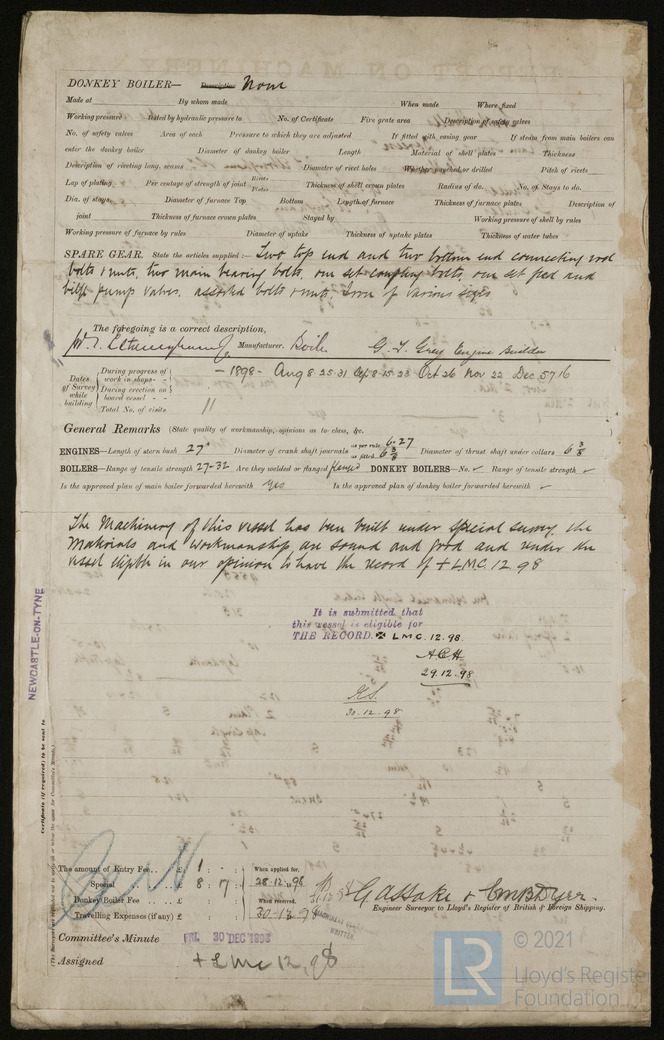 DONKEY BOILER— Description None
Made at By whom made When made Where fixed
Working pressure tested by hydraulic pressure to No. of Certificate Fire grate area Description of safety valves
No. of safety valves Area of each Pressure to which they are adjusted If fitted with easing gear If steam from main boilers can
enter the donkey boiler Diameter of donkey boiler Length Material of shell plates Thickness
Description of riveting long. seams Diameter of rivet holes Whether punched or drilled Pitch of rivets
Lap of plating Per centage of strength of joint Rivets Plates Thickness of shell crown plates Radius of do. No. of Stays to do.
Dia. of stays. Diameter of furnace Top Bottom Length of furnace Thickness of furnace plates Description of
joint Thickness of furnace crown plates Stayed by Working pressure of shell by rules
Working pressure of furnace by rules Diameter of uptake Thickness of uptake plates Thickness of water tubes
SPARE GEAR. State the articles supplied:— Two top end and two bottom end connecting rod
bolts & nuts, two main bearing bolts, one set coupling bolts, one set feed and
bilge pump valves, assorted bolts & nuts, Iron of various sizes
The foregoing is a correct description,
Manufacturer. Boiler G. T. Grey Engine Builder
Dates of Survey while building
During progress of work in shops - - 1898 - Aug 8. 25. 31 Sep 8. 15. 23 Oct 26 Nov 22 Dec 5 7 16
During erection on board vessel - - -
Total No. of visits 11
General Remarks (State quality of workmanship, opinions as to class, &c.
ENGINES—Length of stern bush 27" Diameter of crank shaft journals as per rule 6.27 as fitted 6 3/8 Diameter of thrust shaft under collars 6 3/8
BOILERS—Range of tensile strength 27-32 Are they welded or flanged flanged DONKEY BOILERS—No. ✓ Range of tensile strength ✓
Is the approved plan of main boiler forwarded herewith yes Is the approved plan of donkey boiler forwarded herewith ✓
The Machinery of this vessel has been built under special survey. the
Materials and workmanship are sound and good and under the
vessel eligible in our opinion to have the record of + LMC 12 98
NEWCASTLE-ON-TYNE
It is submitted that
this vessel is eligible for
THE RECORD. ✠ LMC. 12. 98.
29.12.98
30.12.98
Certificate (if required) to be sent to
The amount of Entry Fee. . £ 1 : :
Special . . . £ 8 : 7 :
Donkey Boiler Fee . . . £ : :
Travelling Expenses (if any) £ : :
When applied for,
28.12.98
When received,
30.12.98
Engineer Surveyor to Lloyd's Register of British & Foreign Shipping.
Committee's Minute FRI. 30 DEC 1898
Assigned + LMC 12, 98
MACHINERY CERTIFICATE
WRITTEN.
© 2021
LR
Lloyd's Register
Foundation